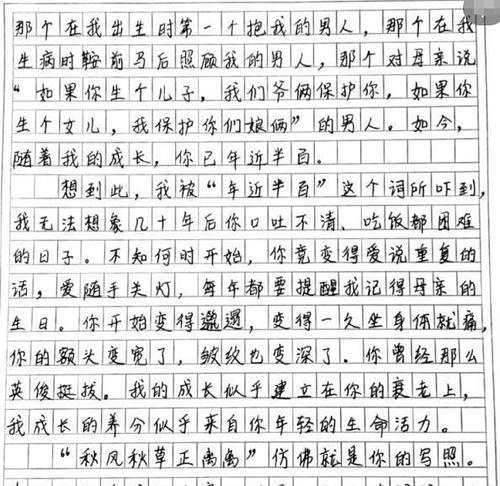 那个在我出生时第一个抱我的男人，那个在我
生病时鞍前马后照顾我的男人，那个对母亲说
“如果你生个儿子，我们爷俩保护你，如果你
生个女儿，我保护你们娘俩”的男人。如今，
随着我的成长，你已年近半百。
想到此，我被“年近半百”这个词所吓到，
我无法想象几十年后你口吐不清、吃饭都困难
的日子。不知何时开始，你竟变得爱说重复的
话，爱随手关灯，每年都要提醒我记得母亲的
生日。你开始变得邋遢，变得一久坐身体就痛，
你的额头变宽了，皱纹也变深了。你曾经那么
英俊挺拔。我的成长似乎建立在你的衰老上，
我成长的养分似乎来自你年轻的生命活力。
“秋风秋草正离离”仿佛就是你的写照。